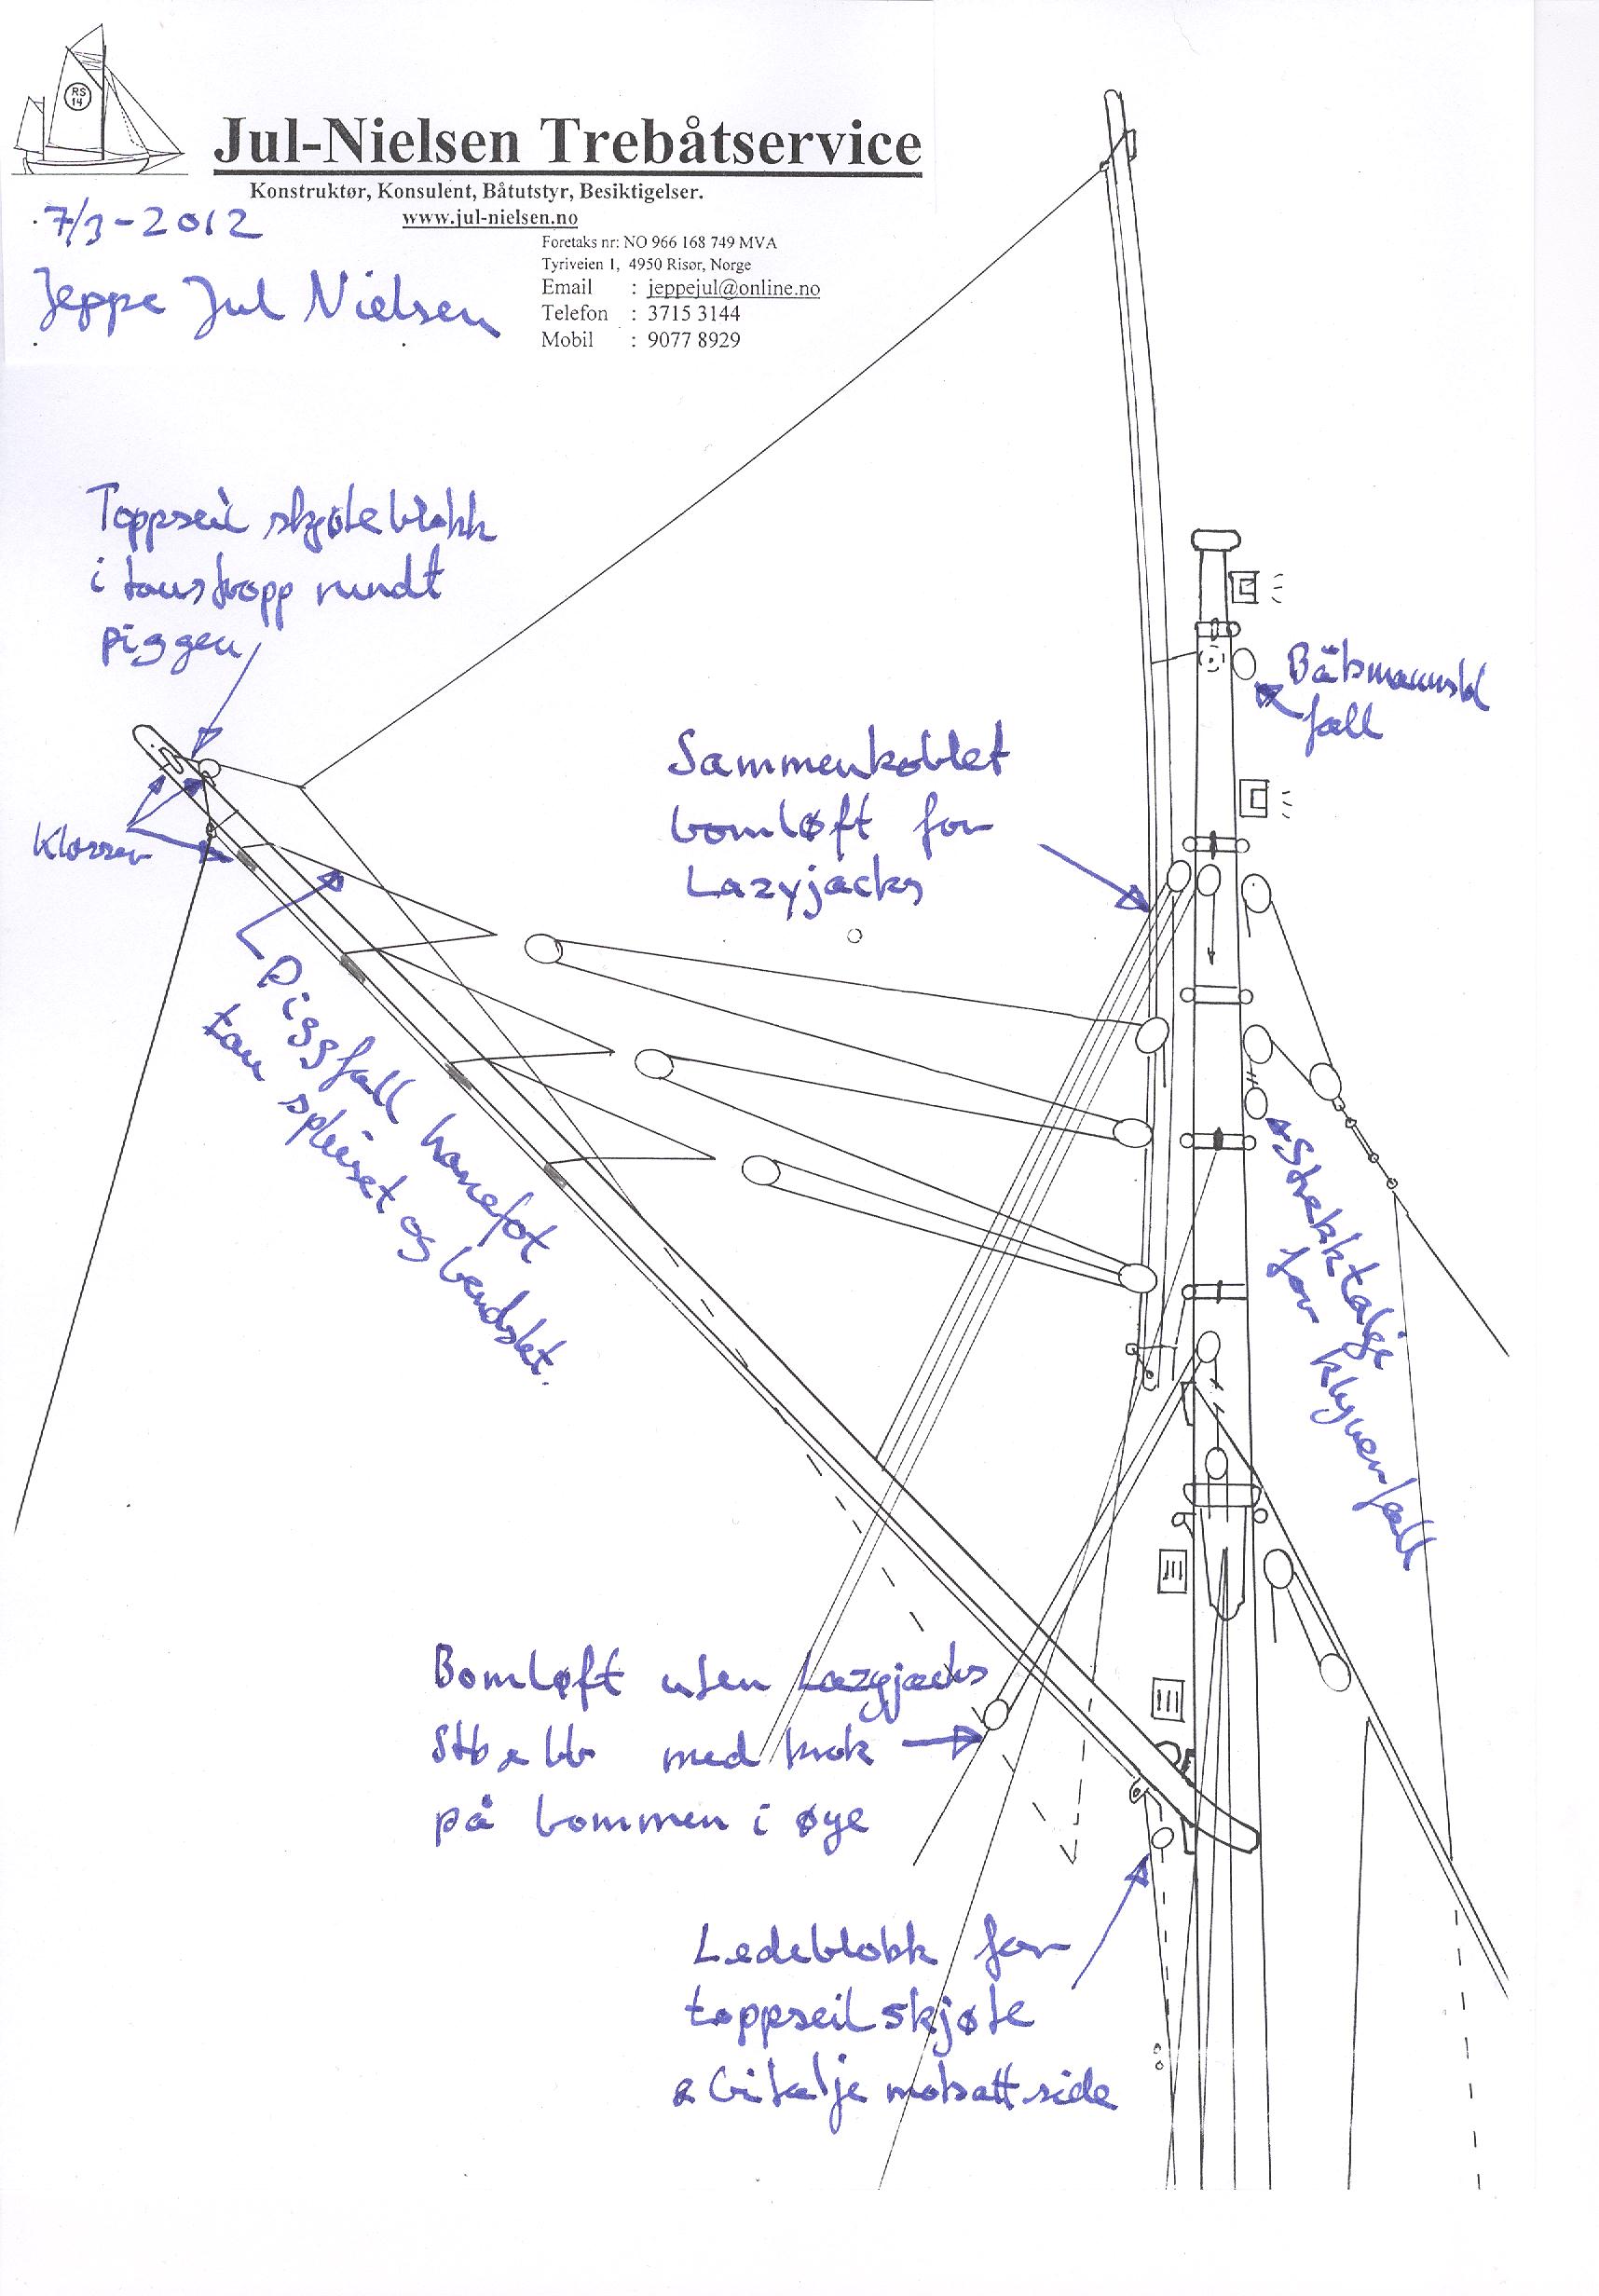 RS
14
Jul-Nielsen Trebåtservice
Konstruktør, Konsulent, Båtutstyr, Besiktigelser.
www.jul-nielsen.no
Foretaks nr: NO 966 168 749 MVA
Tyriveien 1, 4950 Risør, Norge
Email : jeppejul@online.no
Telefon : 3715 3144
Mobil : 9077 8929
7/3-2012
Jeppe Jul Nielsen
Toppseil skjøteblokk
i taustropp rundt
piggen
Klosser
Båtsmannsstol
fall
Sammenkoblet
bomløft for
Lazyjacks
Piggfall hanefot
tau spleiset og bendslet.
Strekktalje
for klyverfall
Bomløft uten Lazyjacks
Stb & bb med krok
på bommen i øye
Ledeblokk for
toppseil skjøte
& Gitalje motsatt side